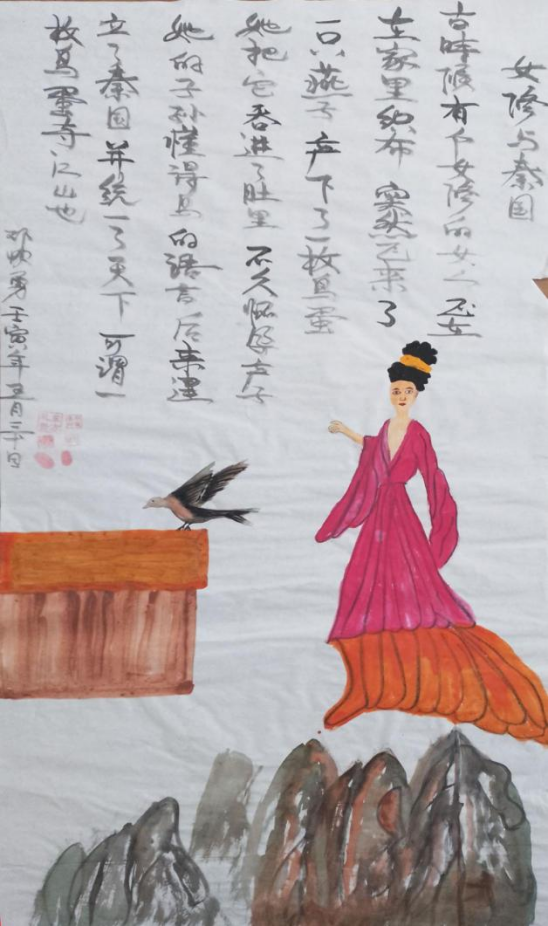 女修与秦国
古時候有个女修的女人 正
在家里织布 突然飞来了
一只燕子 产下了一枚鸟蛋
她把它吞进了肚里 不久怀孕产子
她的子孙懂得鸟的语言后来建
立了秦国 并统一了天下 可谓一
枚鸟蛋江山也
勇壬寅年五月三十日